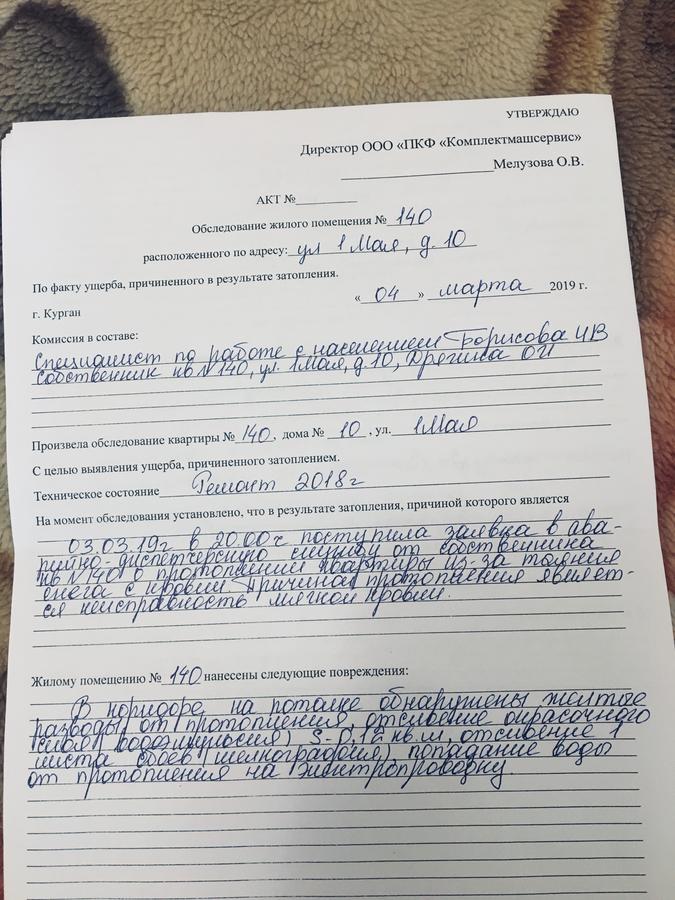 УТВЕРЖДАЮ
Директор ООО «ПКФ «Комплектмашсервис»
____________________Мелузова О.В.
АКТ №__________
Обследование жилого помещения № 140
расположенного по адресу: ул 1 Мая, д. 10
По факту ущерба, причиненного в результате затопления.
« 04 » марта 2019 г.
г. Курган
Комиссия в составе:
Специалист по работе с населением Борисова И В
Собственник кв № 140, ул. 1 Мая, д. 10, Дрегина О И
Произвела обследование квартиры № 140, дома № 10, ул. 1 Мая
С целью выявления ущерба, причиненного затоплением.
Техническое состояние Ремонт 2018 г
На момент обследования установлено, что в результате затопления, причиной которого является
03.03.19 г в 20.00 ч поступила заявка в ава-
рийно-диспетчерскую службу от собственника
кв № 140 о протоплении квартиры из-за таяния
снега с кровли. Причиной протопления являет-
ся неисправность мягкой кровли.
Жилому помещению № 140 нанесены следующие повреждения:
В коридоре на потолке обнаружены желтые
разводы от протопления, отслоение окрасочного
слоя (водоэмульсия) S-0,12 кв.м, отслоение 1
листа обоев (шелкография), попадание воды
от протопления на электропроводку.